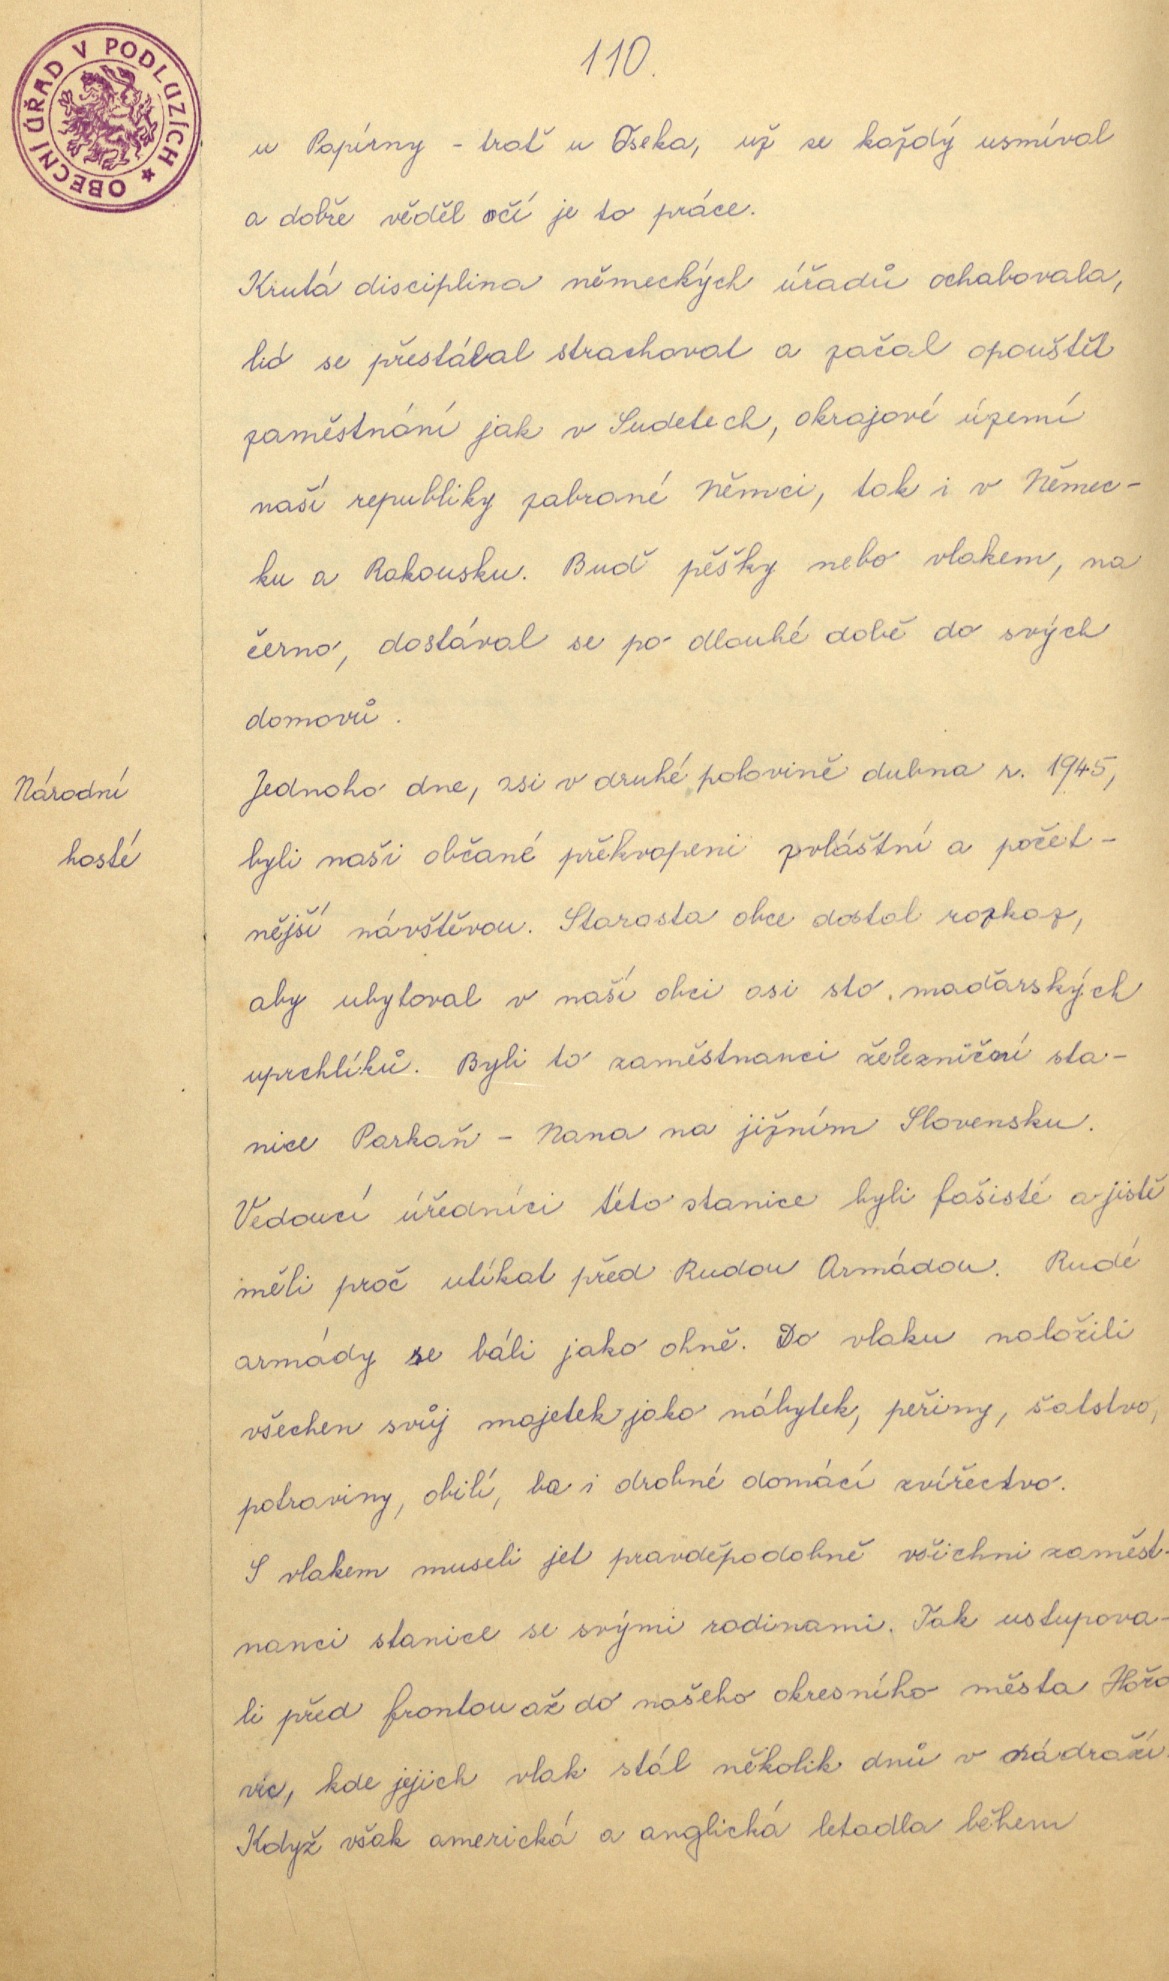 110.
OBECNÍ ÚŘAD V PODLUZÍCH
u Papírny - trať u Oseka, už se každý usmíval
a dobře věděl čí je to práce.
Krutá disciplina německých úřadů ochabovala,
lid se přestával strachovat a začal opouštět
zaměstnání jak v Sudetech, okrajové území
naší republiky zabrané Němci, tak i v Němec-
ku a Rakousku. Buď pěšky nebo vlakem, na
černo, dostával se po dlouhé době do svých
domovů.
Národní
hosté
Jednoho dne, asi v druhé polovině dubna r. 1945,
byli naši občané překvapeni zvláštní a počet-
nější návštěvou. Starosta obce dostal rozkaz,
aby ubytoval v naší obci asi sto maďarských
uprchlíků. Byli to zaměstnanci železniční sta-
nice Parkaň - Nana na jižním Slovensku.
Vedoucí úředníci této stanice byli fašisté a jistě
měli proč utíkat před Rudou Armádou. Rudé
armády se báli jako ohně. Do vlaku naložili
všechen svůj majetek jako nábytek, peřiny, šatstvo,
potraviny, obilí, ba i drobné domácí zvířectvo.
S vlakem museli jet pravděpodobně všichni zaměst-
nanci stanice se svými rodinami. Tak ustupova-
li před frontou až do našeho okresního města Hořo
vic, kde jejich vlak stál několik dnů v nádraží.
Když však americká a anglická letadla během